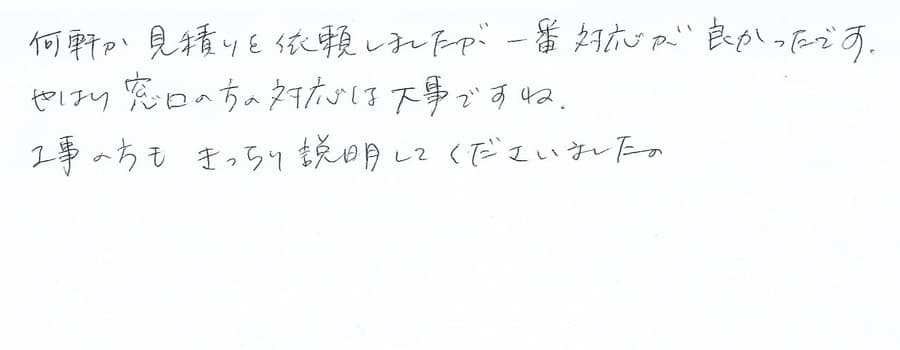 何軒か見積りを依頼しましたが、一番対応が良かったです.
やはり窓口の方の対応は大事ですね.
工事の方もきっちり説明してくださいました。